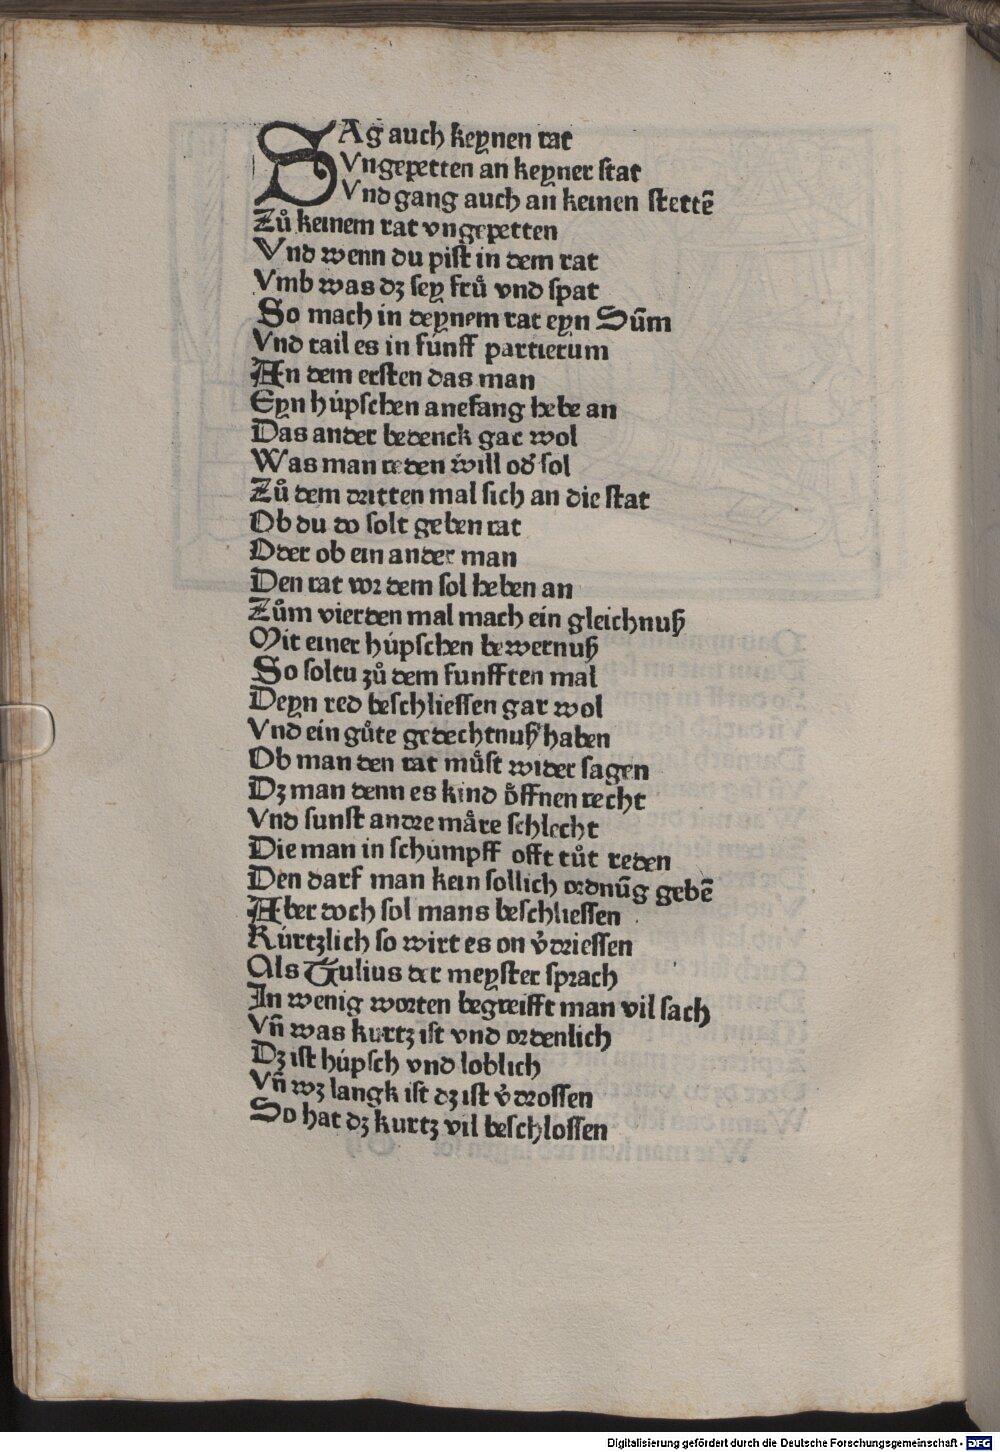 SAg auch keynen rat
Vngepetten an keyner stat
Vnd gang auch an keinen stettē
Zů keinem rat vngepetten
Vnd wenn du pist in dem rat
Vmb was dz sey frů vnd spat
So mach in deynem rat eyn Sūm
Vnd tail es in funff partierum
An dem ersten das man
Eyn húpschen anefang hebe an
Das ander bedenck gar wol
Was man reden will oď sol
Zů dem dritten mal sich an die stat
Ob du do solt geben rat
Oder ob ein ander man
Den rat vor dem sol heben an
Zům vierden mal mach ein gleichnuß
Mit einer húpschen bewernuß
So soltu zů dem funfften mal
Deyn red beschliessen gar wol
Vnd ein gůte gedechtnuß haben
Ob man den rat můst wider sagen
Dz man denn es kind ôffnen recht
Vnd sunst andre måre schlecht
Die man in schumpff offt tůt reden
Den darf man kein sollich ordnūg gebē
Aber doch sol mans beschliessen
Kúrtzlich so wirt es on v̓driessen
Als Tulius der meyster sprach
In wenig worten begreifft man vil sach
Vn̄ was kurtz ist vnd ordenlich
Dz ist húpsch vnd loblich
Vn̄ wz langk ist dz ist v̓drossen
So hat dz kurtz vil beschlossen
Digitalisierung gefördert durch die Deutsche Forschungsgemeinschaft - DFG